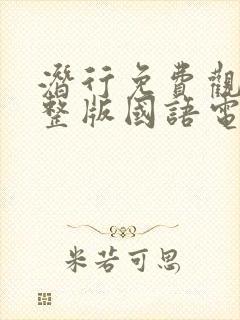 潛行免費觀
整版國語電
米若可思